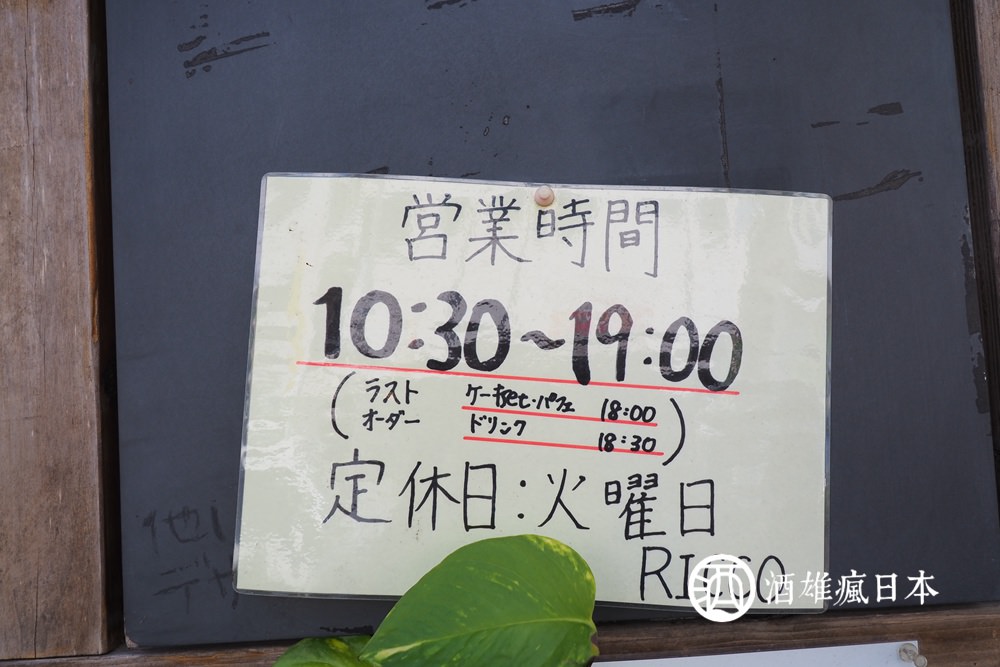 営業時間
10:30～19:00
(ラスト ケーキset・パフェ 18:00)
オーダー ドリンク 18:30
定休日:火曜日
酒雄瘋日本